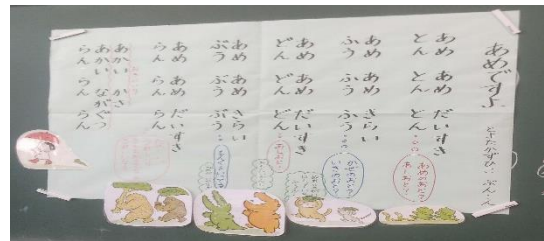 あめですよ
とよたかずひこ ぶん・え
あめ あめ だいすき
とん とん とん
あめ あめ きらい
ふう ふう ふう
あめ あめ だいすき
どん どん どん
あめ あめ きらい
ぶう ぶう ぶう
あめ あめ だいすき
らん らん らん
あかい かさ
あかい ながぐつ
らん らん らん
あめのおと？
あしおと？